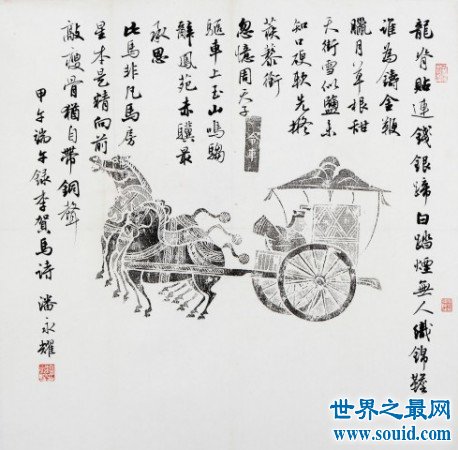 龍脊貼連錢銀蹄白踏煙無人織錦韂
誰為鑄金鞭
臘月草根甜
天街雪似鹽未
知口硬軟先擬
蒺藜銜
忽憶周天子
驅車上玉山鳴騶
辭鳳苑赤驥最
承恩
此馬非凡馬房
星本是精向前
敲瘦骨猶自帶銅聲
甲午端午錄李賀馬詩 潘永耀
世界之最网
www.souid.com